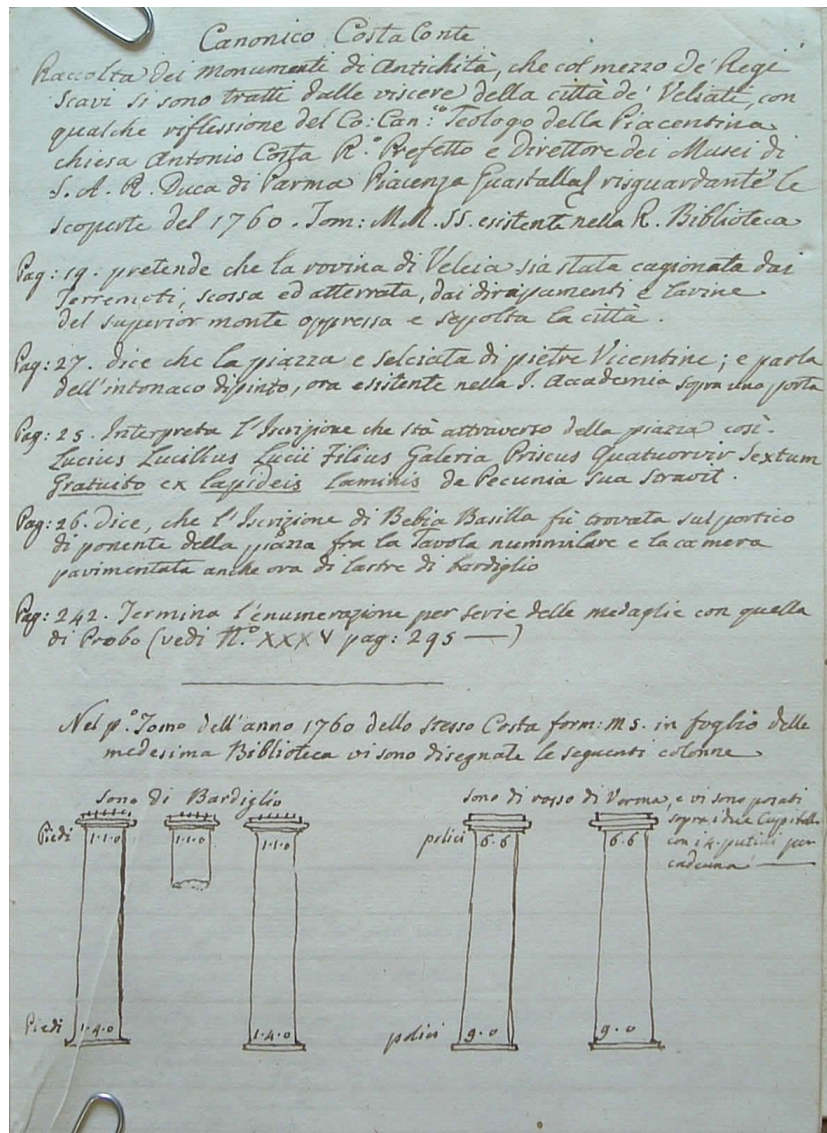 Canonico Costa Conte
Raccolta dei monumenti di Antichità, che col mezzo de' Regi
scavi si sono tratti dalle viscere della città de' Veliati, con
qualche riflessione del Co: Can:co Teologo della Piacentina
chiesa Antonio Costa R.o Prefetto e Direttore dei Musei di
S. A. R. Duca di Parma Piacenza Guastalla &. risguardante le
scoperte del 1760. Tom: M.M. SS. esistente nella R. Biblioteca
Pag: 19. pretende che la rovina di Veleia sia stata cagionata dai
Terremoti, scossa ed atterrata, dai dirupamenti e lavine
del superior monte oppressa e sepolta la città.
Pag: 27. dice che la piazza e selciata di pietre Vicentine; e parla
dell'intonaco dipinto, ora essitente nella I. Accademia sopra una porta
Pag: 25. Interpreta l'Iscrizione che stà attraverso della piazza così-
Lucius Lucillus Lucii Filius Galeria Priscus Quatuorvir Sextum
Gratuito ex lapideis laminis de Pecunia sua stravit.
Pag: 26. Dice, che l'Iscrizione di Bebia Basilla fù trovata sul portico
di ponente della piazza fra la Tavola nummulare e la camera
pavimentata anche ora di lastre di bardiglio
Pag: 242. Termina l'enumerazione per serie delle medaglie con quella
di Probo (vedi N.o XXXV pag: 295 —)
Nel p.o Tomo dell'anno 1760 dello stesso Costa form: ms. in foglio delle
medesima Biblioteca vi sono disegnate le seguenti colonne
sono di Bardiglio
sono di rosso di Verona, e vi sono posati
sopra i due Capitelli
con i 4. putini per
caduna —
Piedi 1.1.0 1.1.0 1.1.0
polici 6.6 6.6
Piedi 1.4.0 1.4.0
polici 9.0 9.0